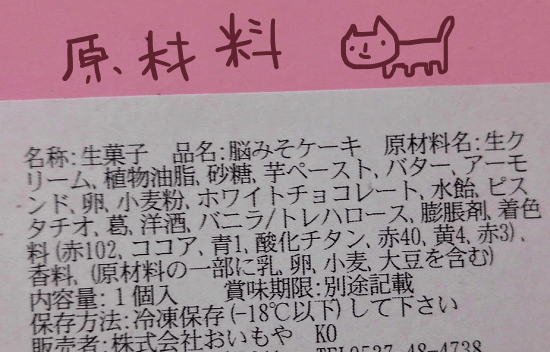 原材料
名称:生菓子 品名:脳みそケーキ 原材料名:生ク
リーム、植物油脂、砂糖、芋ペースト、バター、アーモ
ンド、卵、小麦粉、ホワイトチョコレート、水飴、ピス
タチオ、葛、洋酒、バニラ/トレハロース、膨脹剤、着色
料(赤102、ココア、青1、酸化チタン、赤40、黄4、赤3)、
香料、(原材料の一部に乳、卵、小麦、大豆を含む)
内容量:1個入 賞味期限:別途記載
保存方法:冷凍保存(-18℃以下)して下さい
販売者:株式会社おいもや KO
TEL0537-48-4738